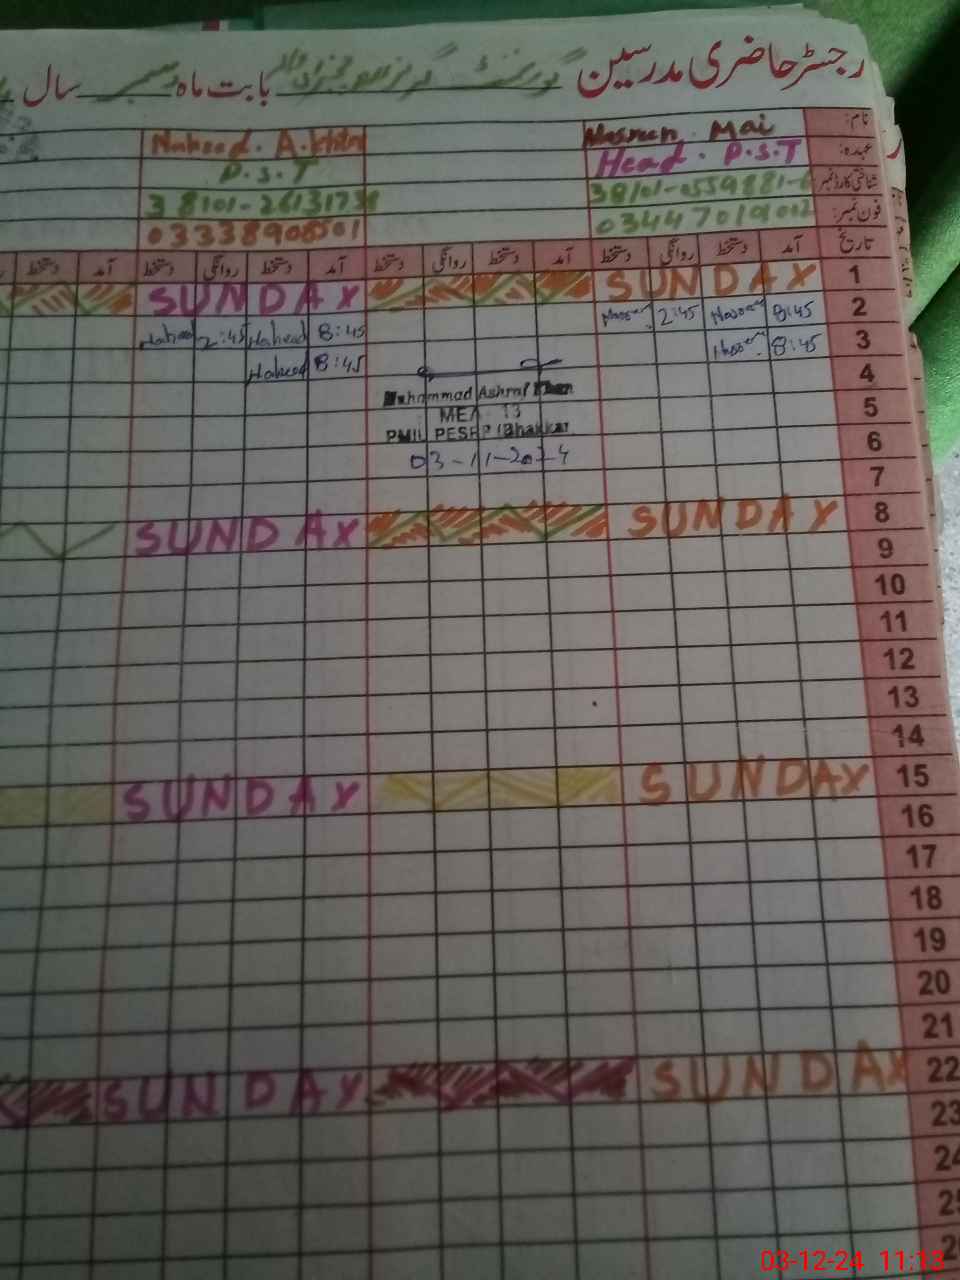 رجسٹر حاضری مدرسین گورنمنٹ گرلز بابت ماہ دسمبر سال
نام: Nasreen Mai Naheed. A.khtar
عہدہ: Head. P.S.T P.S.T
شناختی کارڈ نمبر 38101-0559881-6 38101-2613173
فون نمبر: 03447019012 03338908501
تاریخ آمد دستخط روانگی دستخط آمد دستخط روانگی دستخط آمد دستخط روانگی دستخط آمد دستخط
1 SUNDAY SUNDAY
2 8:45 2:45 8:45 Naheed 2:45 Naheed
3 8:45 8:45 Naheed
4
Muhammad Ashraf Khan
5
MEA 13
PMIU PESRP Bhakkar
6
03-11-2024
7
8 SUNDAY SUNDAY
9
10
11
12
13
14
15 SUNDAY SUNDAY
16
17
18
19
20
21
22 SUNDAY SUNDAY
23
24
25
26
03-12-24 11:13